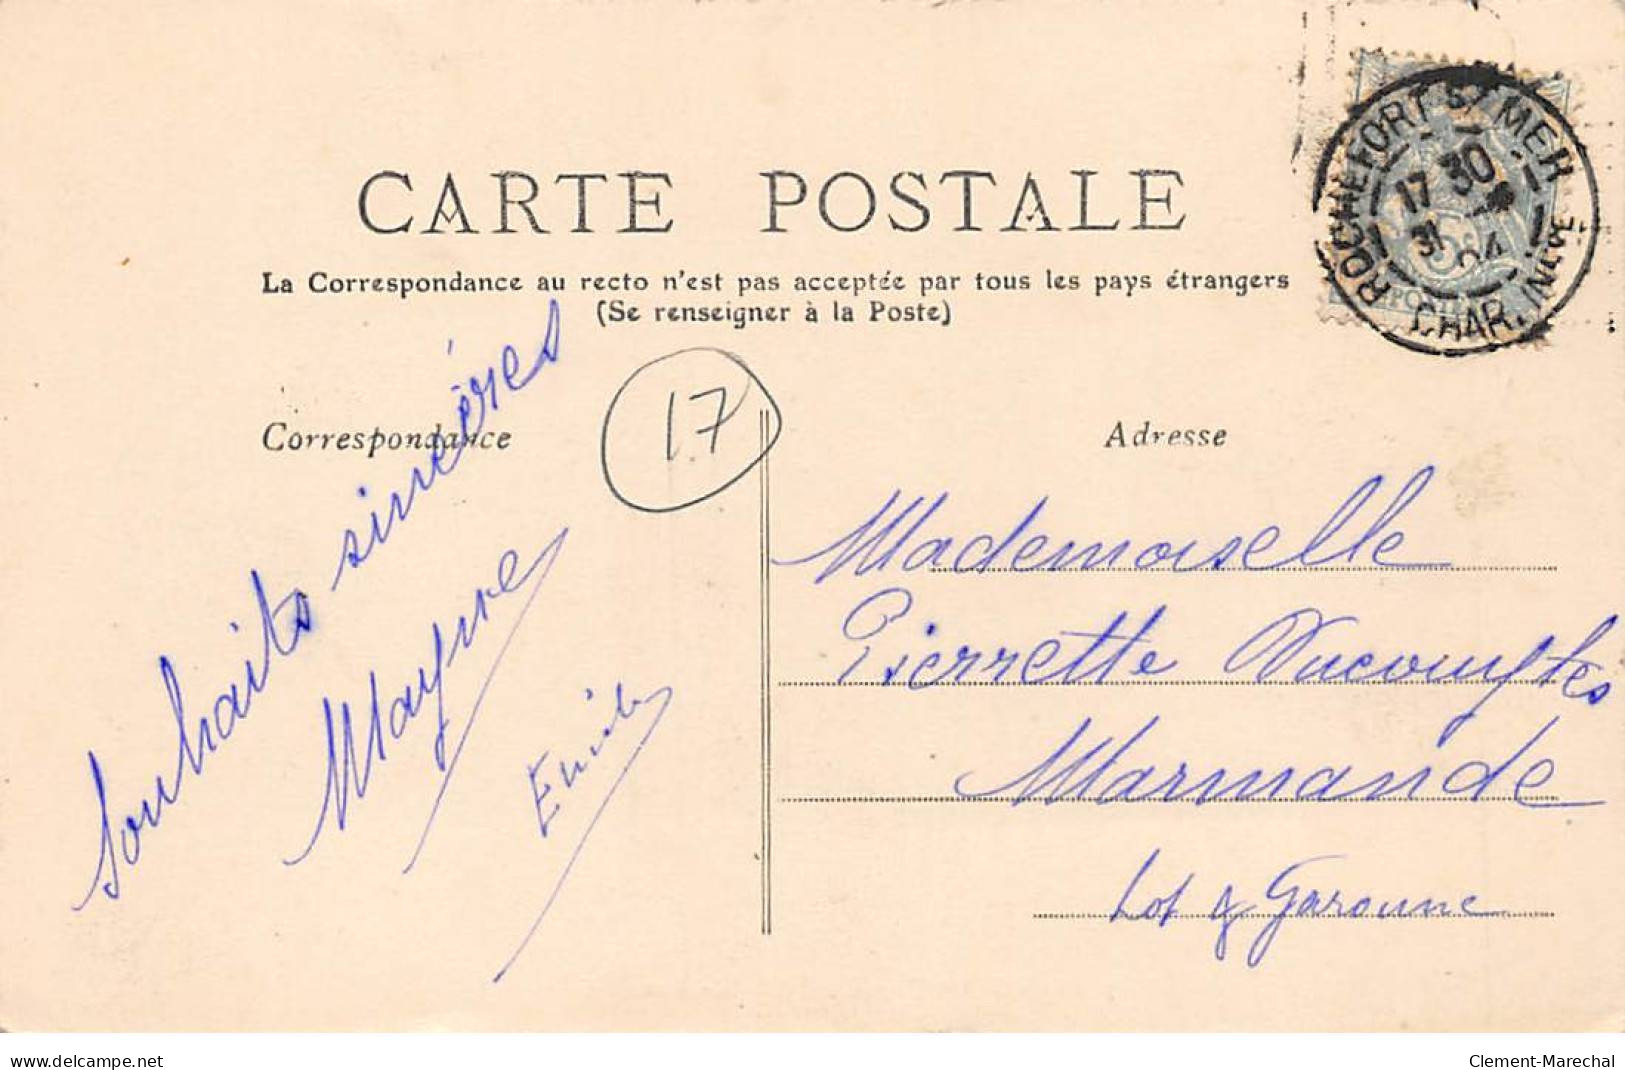 CARTE POSTALE
La Correspondance au recto n'est pas acceptée par tous les pays étrangers
(Se renseigner à la Poste)
ROCHEFORT S/ MER
17 30
31
04
CHAR. INFRE
Correspondance
17
Adresse
Souhaits sincères
Emile
Mademoiselle
Pierrette Ducouytes
Marmande
Lot & Garonne
www.delcampe.net
Clement-Marechal